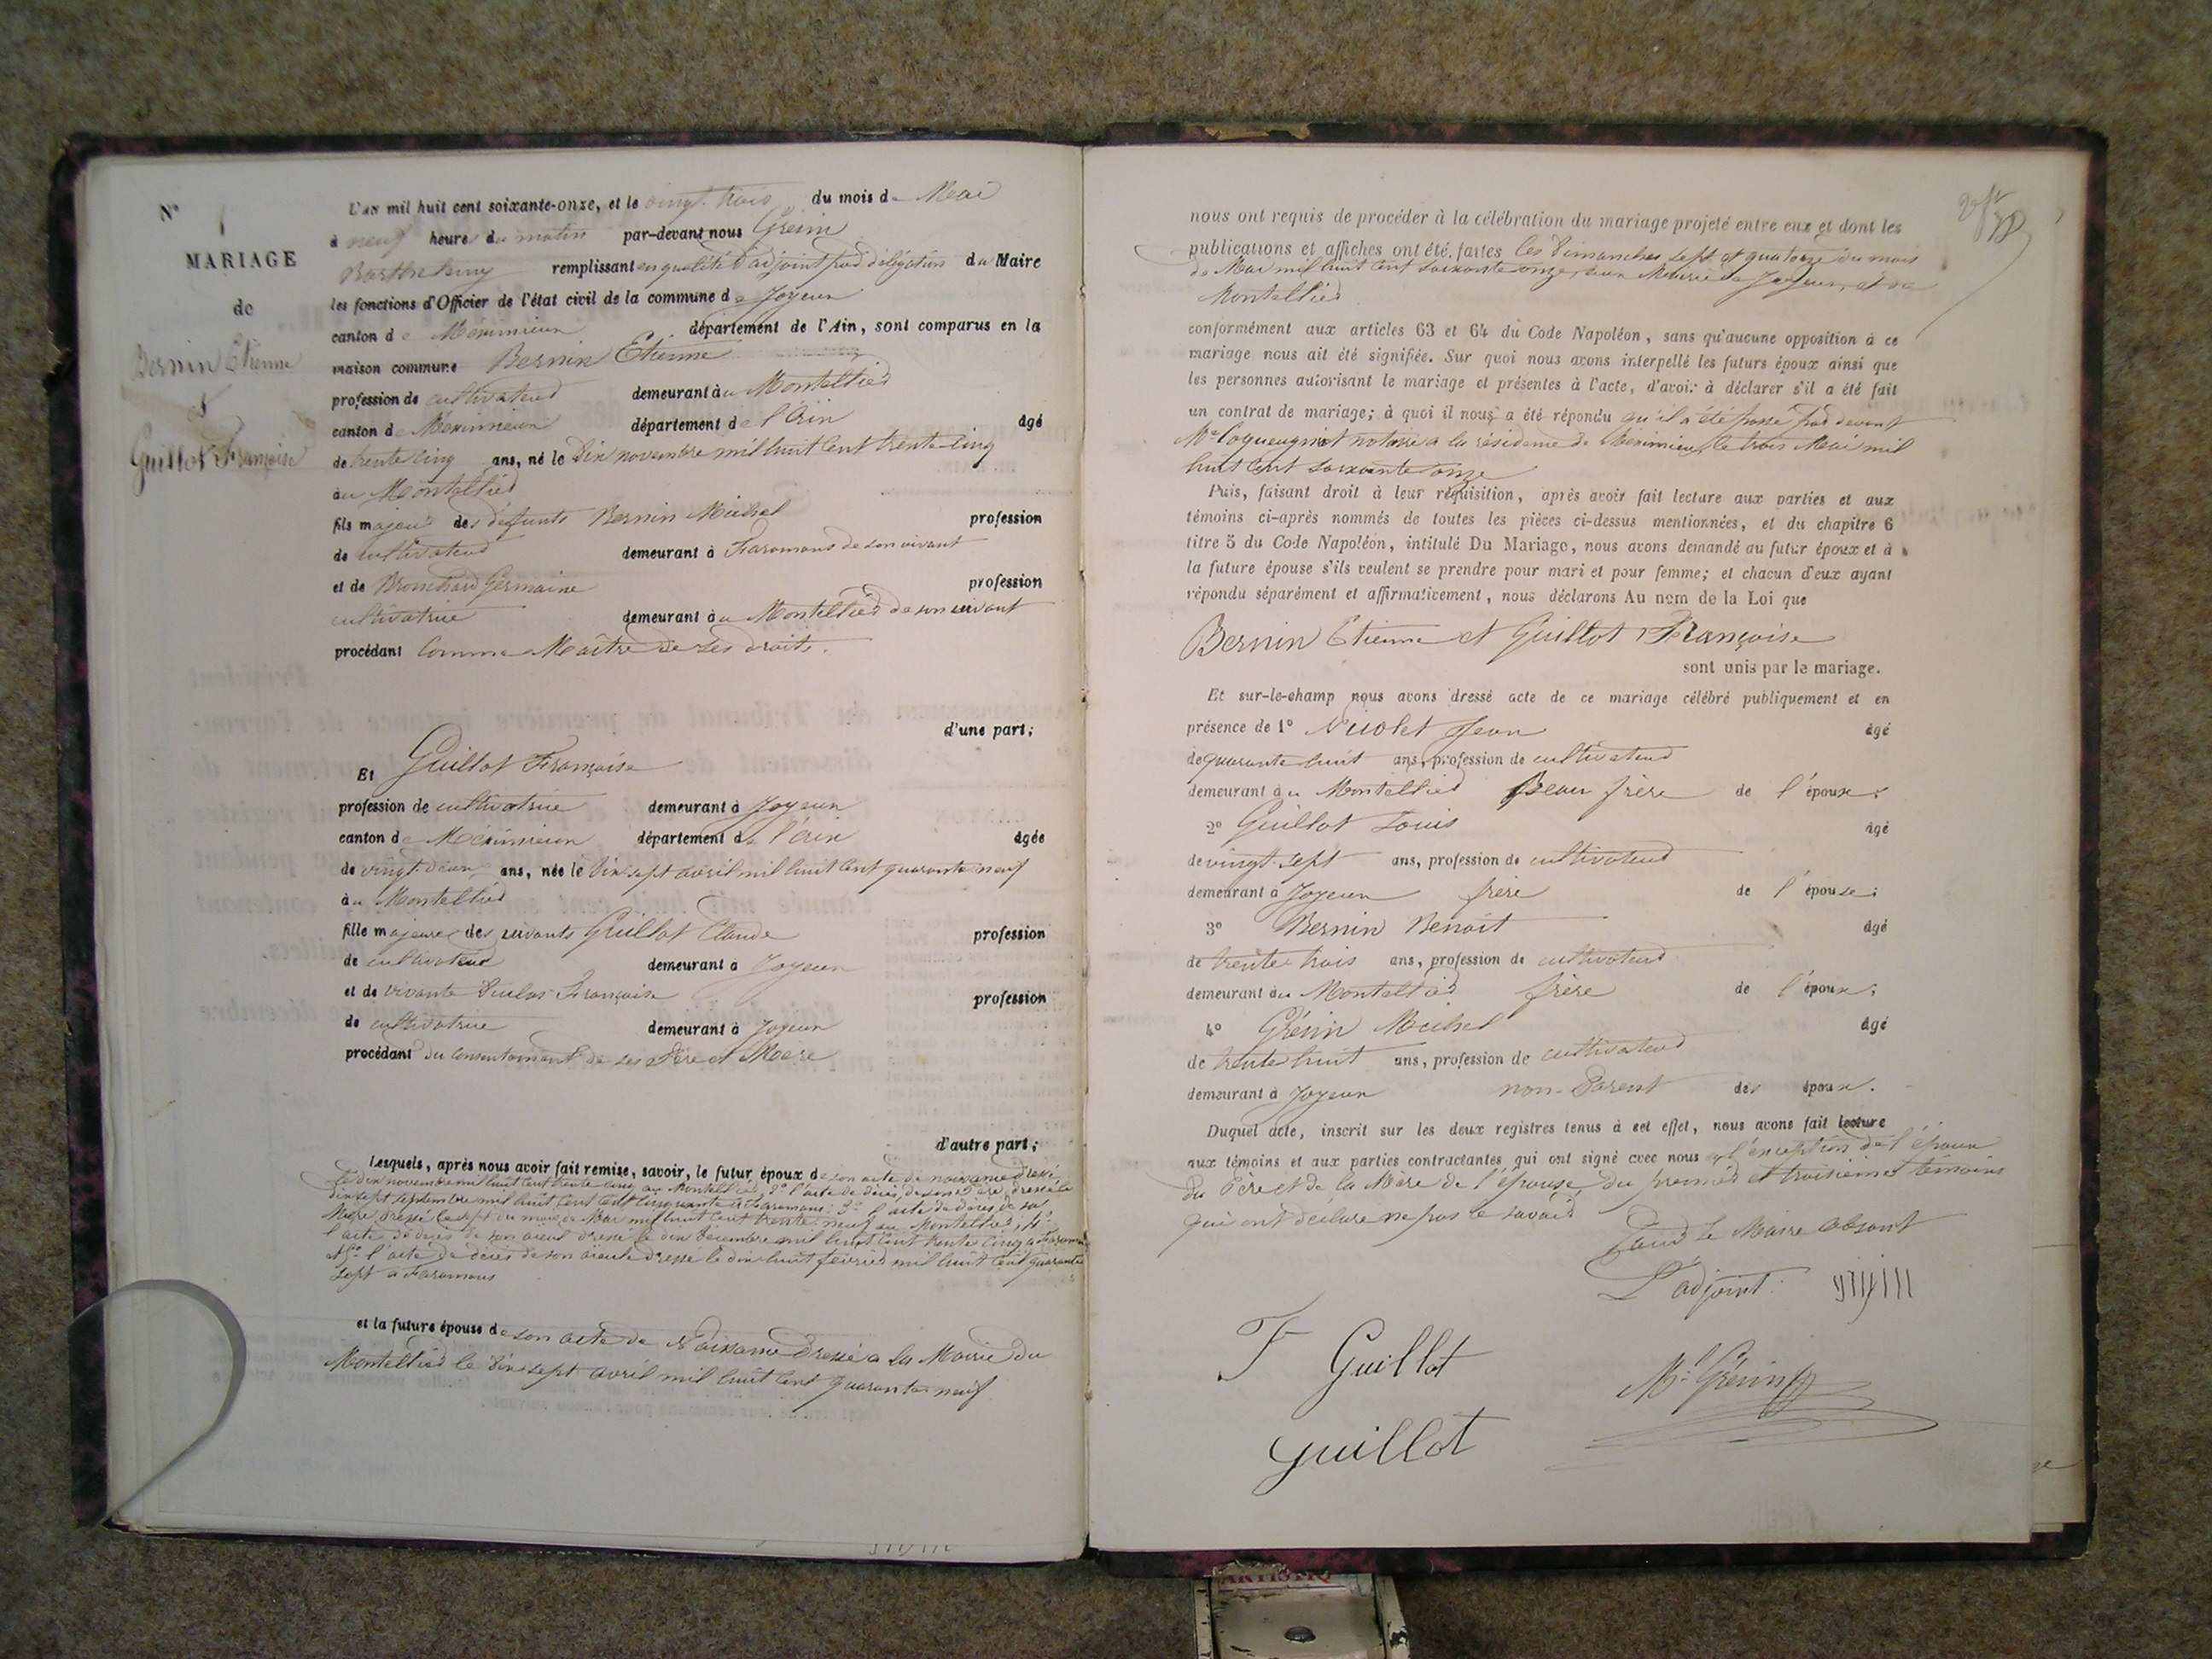 N° 1
MARIAGE
de
Bernin Etienne
&
Guillot Françoise
L'an mil huit cent soixante-onze, et le vingt trois du mois de Mai
à neuf heures du matin par-devant nous
Barthelemy remplissant en qualité d'adjoint par délégation du Maire
les fonctions d'Officier de l'état civil de la commune de Joyeux
canton de Meximieux département de l'Ain, sont comparus en la
maison commune Bernin Etienne
profession de cultivateur demeurant au Montellier
canton de Meximieux département de l'Ain âgé
de trente cinq ans, né le dix novembre mil huit cent trente cinq
au Montellier
fils majeur des défunts Bernin Michel profession
de cultivateur demeurant à Faramans de son vivant
et de Germaine profession
cultivatrice demeurant au Montellier de son vivant
procédant comme Maître de ses droits.
d'une part;
Et Guillot Françoise
profession de cultivatrice demeurant à Joyeux
canton de Meximieux département de l'ain âgée
de vingt deux ans, née le dix sept avril mil huit cent quarante neuf
au Montellier
fille majeure des vivants Guillot Claude profession
de cultivateur demeurant à Joyeux
et de vivante Françoise profession
de cultivatrice demeurant à Joyeux
procédant du consentement de ses Père et Mère
d'autre part;
Lesquels, après nous avoir fait remise, savoir, le futur époux de son acte de naissance dressé
le dix novembre mil huit cent trente cinq au Montellier, 2° l'acte de décès de son Père dressé le
dix sept septembre mil huit cent cinquante à Faramans; 3° l'acte de décès de sa
Mère dressé le sept du mois de Mai mil huit cent trente neuf au Montellier, 4°
l'acte de décès de son aieul dressé le dix décembre mil huit cent trente cinq à Faramans
5° l'acte de décès de son aieule dressé le dix huit février mil huit cent quarante
sept à Faramans
et la future épouse de son acte de Naissance dressé à la Mairie du
Montellier le dix sept avril mil huit cent quarante neuf
nous ont requis de procéder à la célébration du mariage projeté entre eux et dont les
publications et affiches ont été faites les Dimanches sept et quatorze du mois
de Mai mil huit cent soixante onze, aux Mairie de Joyeux, et au
Montellier
conformément aux articles 63 et 64 du Code Napoléon, sans qu'aucune opposition à ce
mariage nous ait été signifiée. Sur quoi nous avons interpellé les futurs époux ainsi que
les personnes autorisant le mariage et présentes à l'acte, d'avoir à déclarer s'il a été fait
un contrat de mariage; à quoi il nous a été répondu qu'il a été passé par devant
Me Coqueugniot notaire a la résidence de Meximieux, le trois Mai mil
huit cent soixante onze
Puis, faisant droit à leur réquisition, après avoir fait lecture aux parties et aux
témoins ci-après nommés de toutes les pièces ci-dessus mentionnées, et du chapitre 6
titre 5 du Code Napoléon, intitulé Du Mariage, nous avons demandé au futur époux et à
la future épouse s'ils veulent se prendre pour mari et pour femme; et chacun d'eux ayant
répondu séparément et affirmativement, nous déclarons Au nom de la Loi que
Bernin Etienne et Guillot Françoise
sont unis par le mariage.
Et sur-le-champ nous avons dressé acte de ce mariage célébré publiquement et en
présence de 1° Jean âgé
de quarante huit ans, profession de cultivateur
demeurant au Montellier Beau frère de l'époux;
2° Guillot Louis âgé
de vingt sept ans, profession de cultivateur
demeurant à Joyeux frère de l'épouse;
3° Bernin Benoit âgé
de trente trois ans, profession de cultivateur
demeurant au Montellier frère de l'époux;
4° Grévin Michel âgé
de trente huit ans, profession de cultivateur
demeurant à Joyeux non-Parent des époux.
Duquel acte, inscrit sur les deux registres tenus à cet effet, nous avons fait lecture
aux témoins et aux parties contractantes qui ont signé avec nous à l'exception de l'époux
du Père et de la Mère de l'épouse du premier et troisième témoins
qui ont déclaré ne pas le savoir
Pour le Maire absent
L'adjoint
F Guillot
Ml Grévin
Guillot